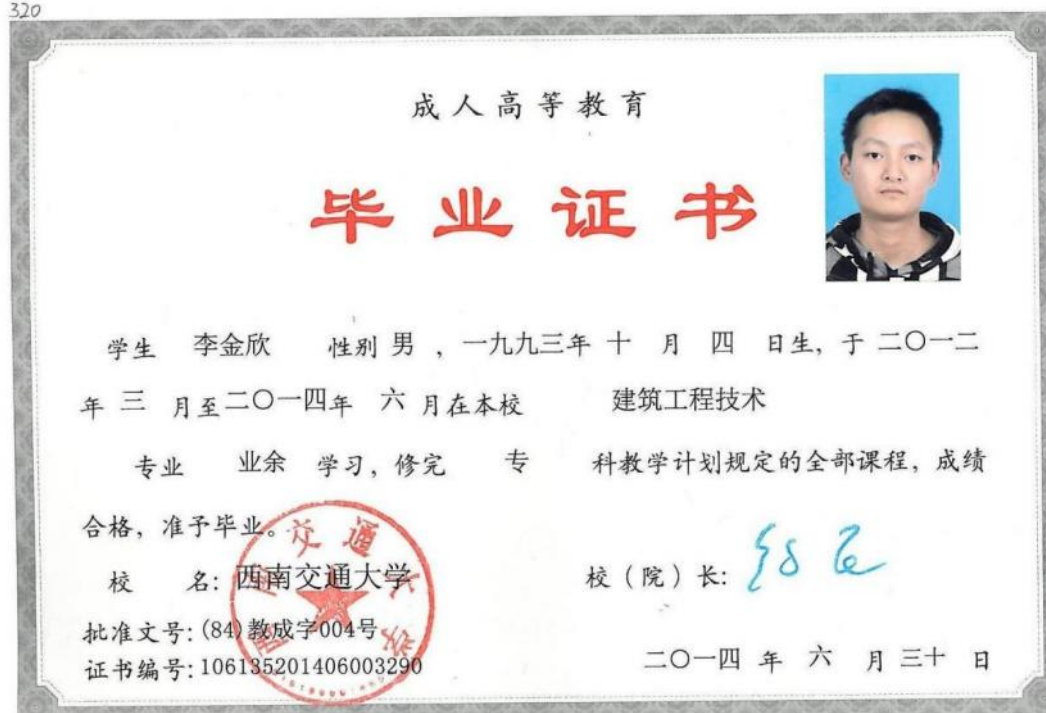 320
成人高等教育
毕业证书
学生 李金欣 性别 男 , 一九九三年 十 月 四 日生, 于 二〇一二
年 三 月至二〇一四年 六 月在本校 建筑工程技术
专业 业余 学习, 修完 专 科教学计划规定的全部课程, 成绩
合格, 准予毕业。
西南交通大学
校 名: 西南交通大学 校（院）长:
批准文号: (84)教成字004号
证书编号: 106135201406003290 二〇一四 年 六 月 三十 日